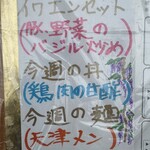 イワエンセット
(豚・野菜の
バジル炒め)
今週の丼
(鶏肉の甘酢)
今週の麺
(天津メン)